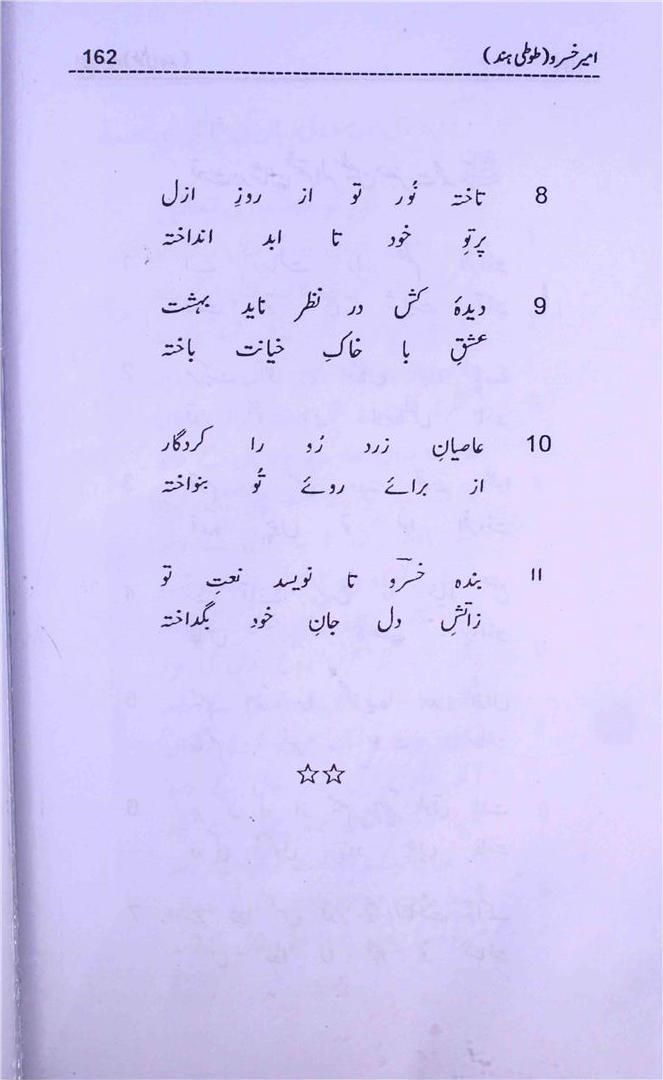 امیر خسرو (طوطی ہند) 162
8 تاختہ نُور تو از روزِ ازل
پرتوِ خود تا ابد انداختہ
9 دیدۂ کش در نظر ناید بہشت
عشقِ با خاکِ خیانت باختہ
10 عاصیانِ زرد رُو را کردگار
از برائے روئے تُو بنواختہ
11 بندہ خسرؔو تا نویسد نعتِ تو
زآتشِ دل جانِ خود بگداختہ
☆☆